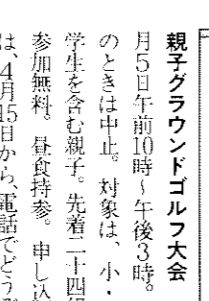 親子グラウンドゴルフ大会
月5日午前10時～午後3時。
のときは中止。対象は、小・
学生を含む親子。先着二十四組
参加無料。昼食持参。申し込
は、4月15日から、電話でどうぞ